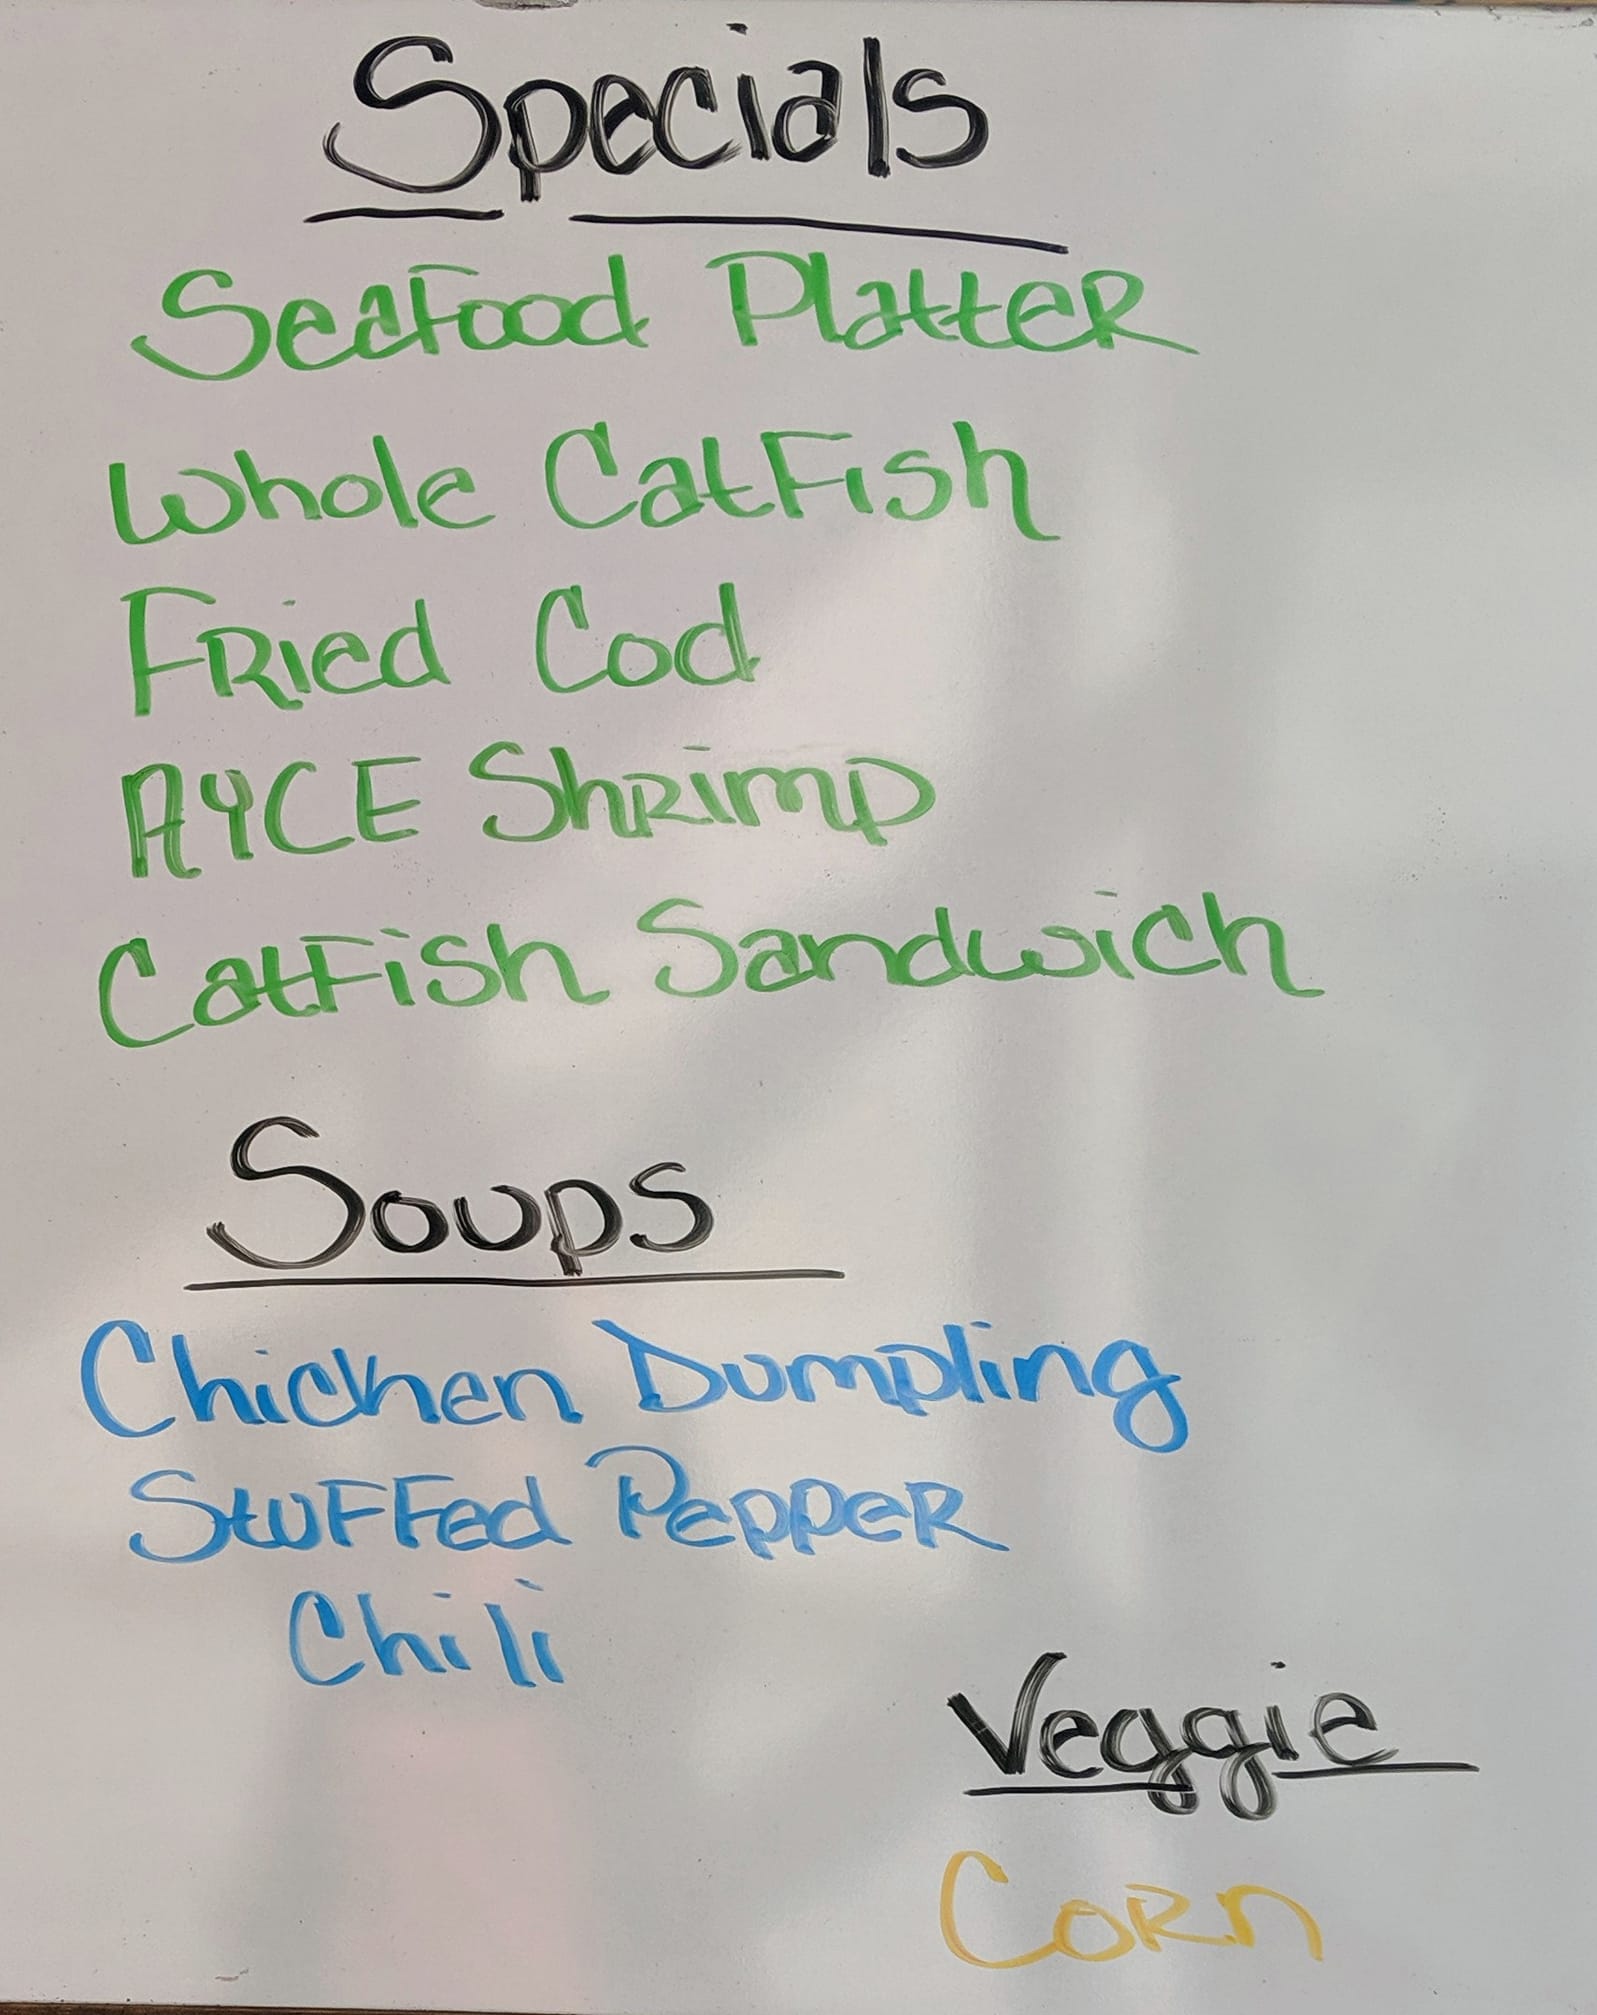 Specials
Seafood Platter
Whole CatFish
FRied Cod
AYCE ShRimp
CatFish Sandwich
Soups
Chicken Dumpling
StuFFed PeppeR
Chili
Veggie
CoRn